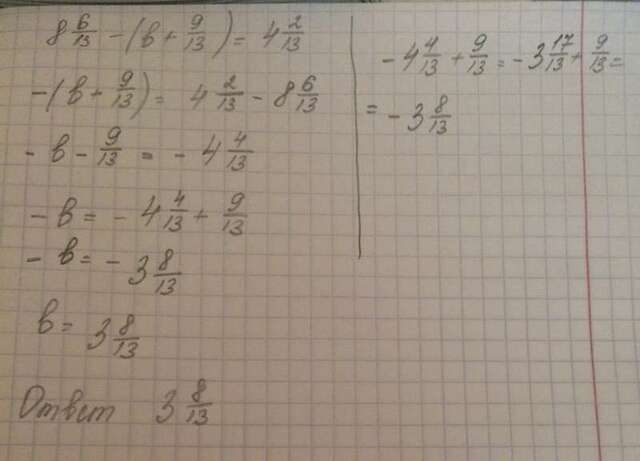 8 6/13 - (в + 9/13) = 4 2/13
-(в + 9/13) = 4 2/13 - 8 6/13
- в - 9/13 = - 4 4/13
- в = - 4 4/13 + 9/13
- в = - 3 8/13
в = 3 8/13
Ответ 3 8/13
- 4 4/13 + 9/13 = - 3 17/13 + 9/13 =
= - 3 8/13